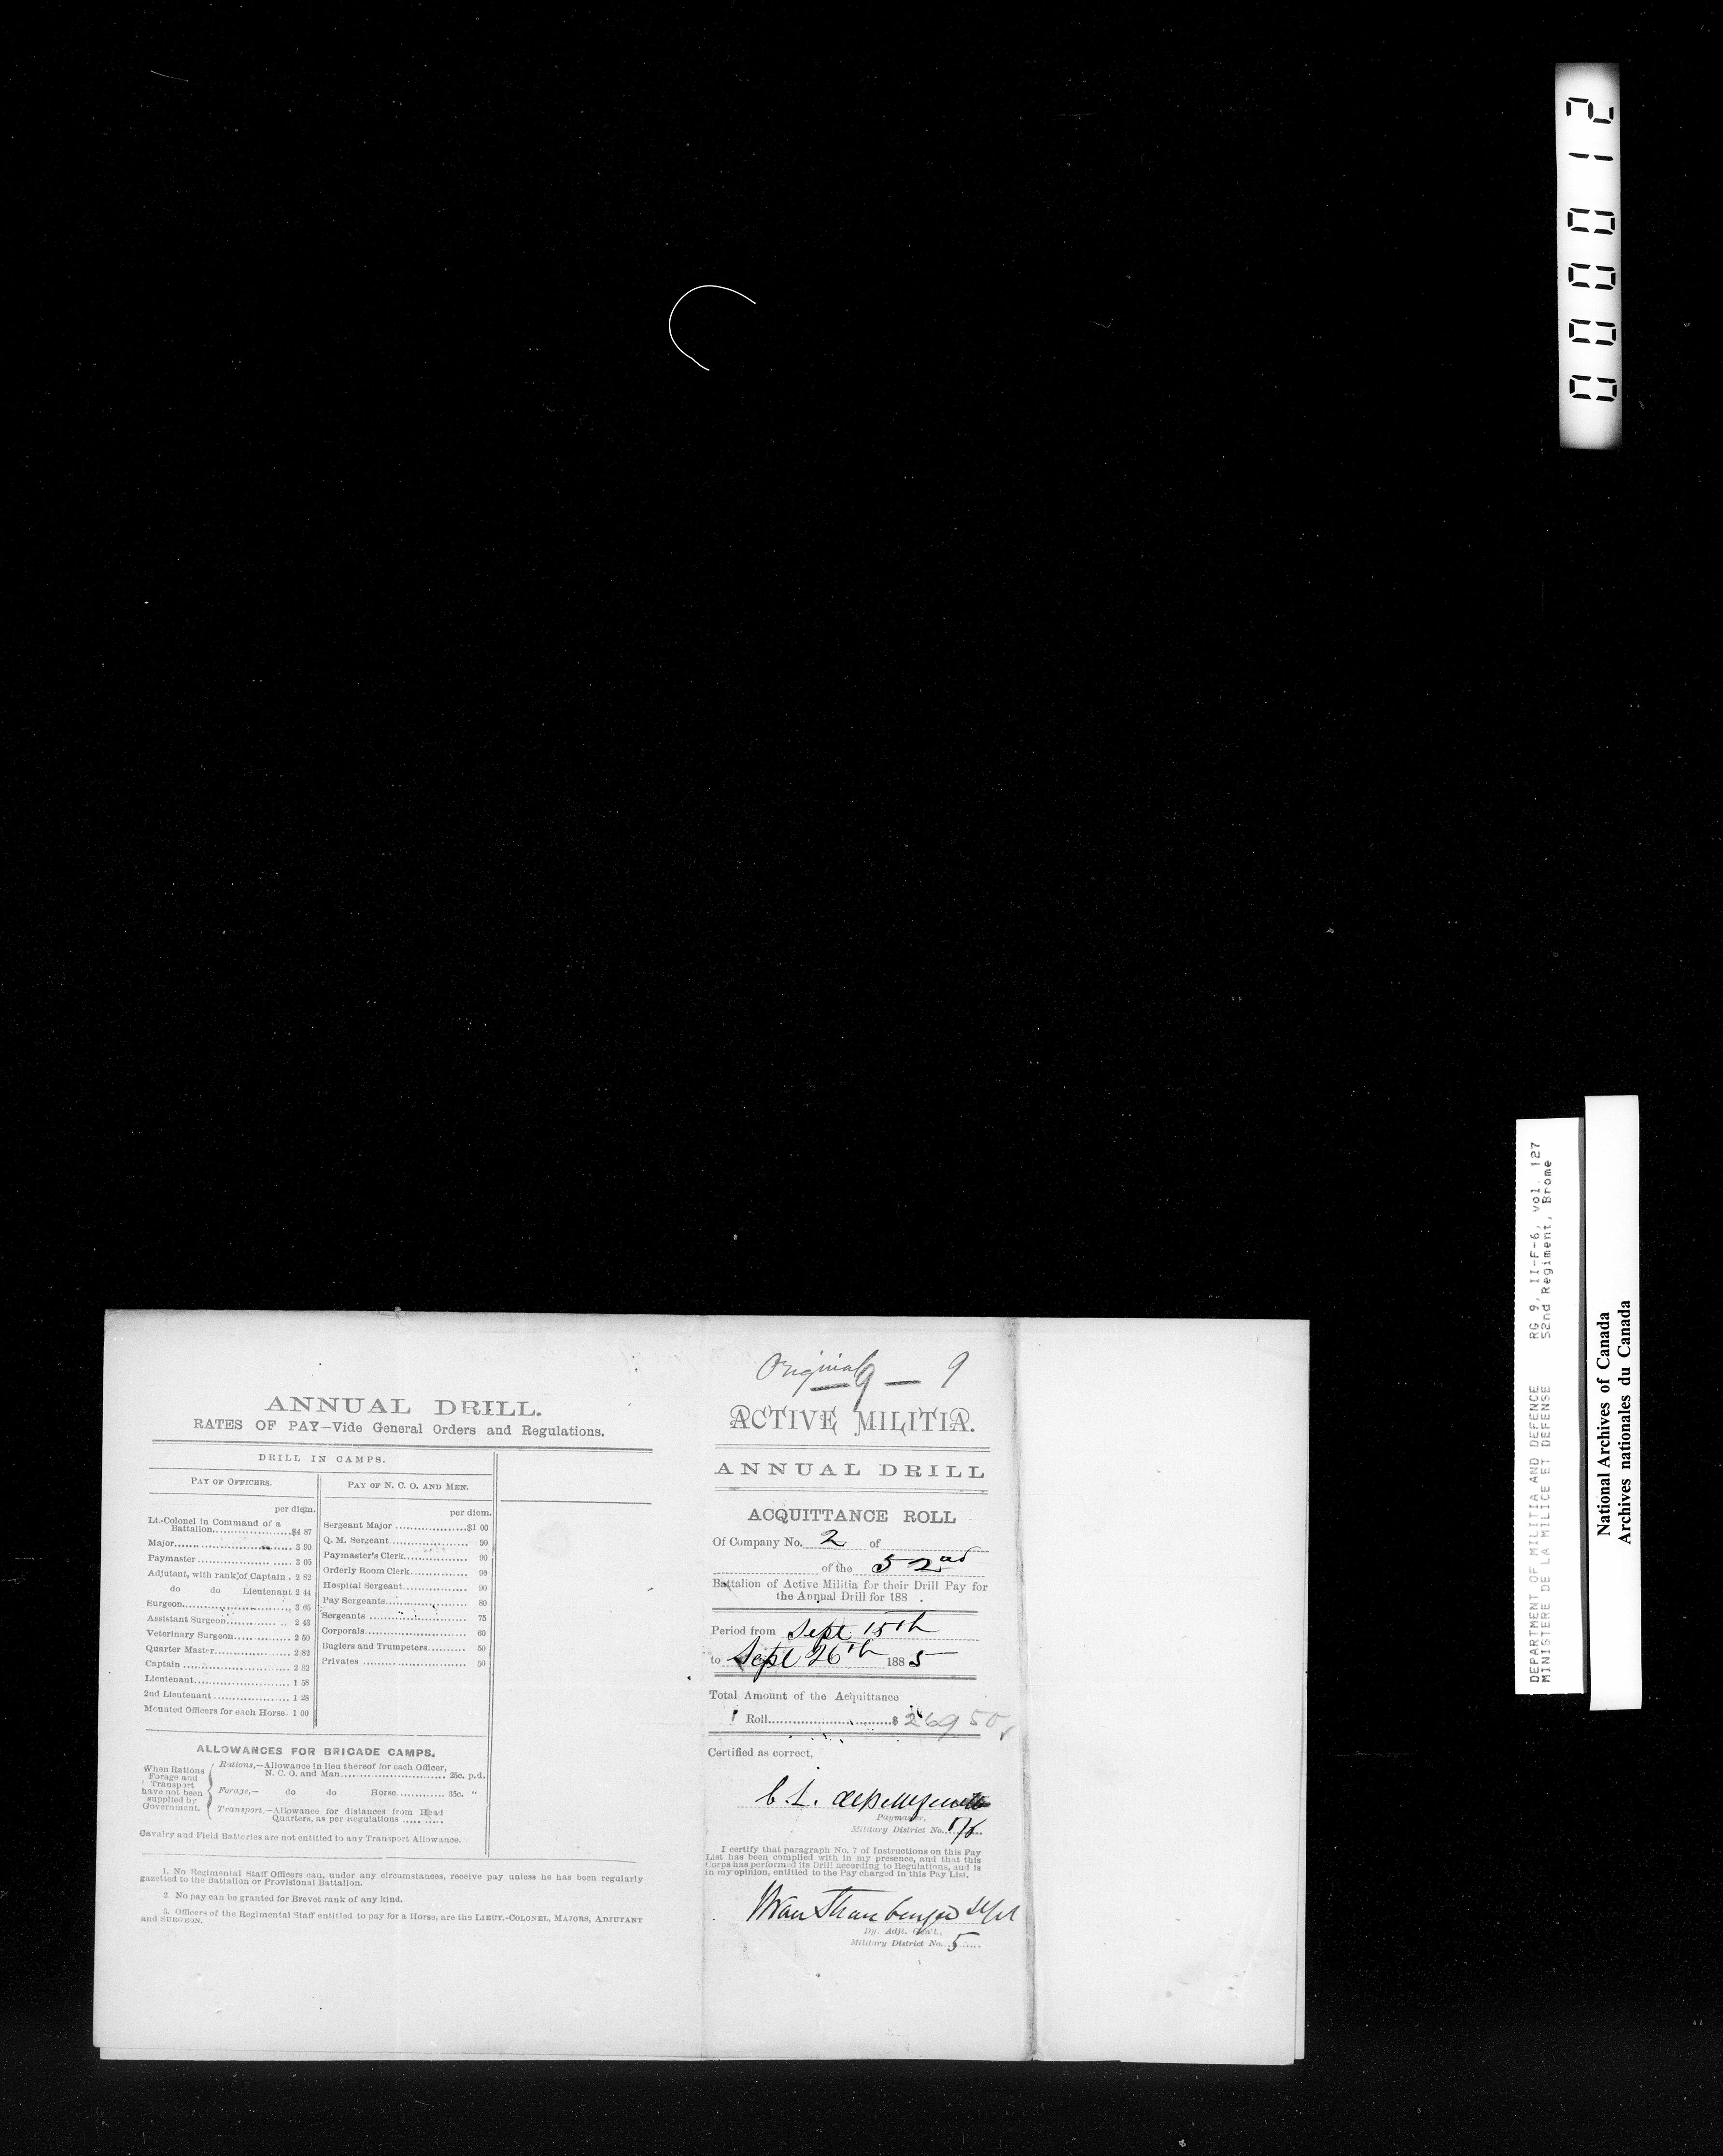 000012
DEPARTMENT OF MILITIA AND DEFENCE RG 9, II-F-6, vol. 127
MINISTERE DE LA MILICE ET DEFENSE 52nd Regiment, Brome
National Archives of Canada
Archives nationales du Canada
ANNUAL DRILL.
RATES OF PAY—Vide General Orders and Regulations.
DRILL IN CAMPS.
PAY OF OFFICERS.
per diem.
Lt.-Colonel in Command of a
Battalion....................$4 87
Major.............................. 3 90
Paymaster........................ 3 05
Adjutant, with rank of Captain . 2 82
do do Lieutenant 2 44
Surgeon............................ 3 65
Assistant Surgeon............... 2 43
Veterinary Surgeon.............. 2 50
Quarter Master................... 2 82
Captain ........................... 2 82
Lieutenant........................ 1 58
2nd Lieutenant................... 1 28
Mounted Officers for each Horse. 1 00
PAY OF N. C. O. AND MEN.
per diem.
Sergeant Major ..................$1 00
Q. M. Sergeant.................... 90
Paymaster's Clerk................ 90
Orderly Room Clerk.............. 90
Hospital Sergeant................ 90
Pay Sergeants..................... 80
Sergeants .......................... 75
Corporals........................... 60
Buglers and Trumpeters.......... 50
Privates ............................ 50
ALLOWANCES FOR BRIGADE CAMPS.
When Rations
Forage and
Transport
have not been
supplied by
Government.
Rations,—Allowance in lieu thereof for each Officer,
N. C. O. and Man.......................... 25c. p.d.
Forage,— do do Horse............ 35c. "
Transport,—Allowance for distances from Head
Quarters, as per Regulations ..... .....
Cavalry and Field Batteries are not entitled to any Transport Allowance.
1. No Regimental Staff Officers can, under any circumstances, receive pay unless he has been regularly
gazetted to the Battalion or Provisional Battalion.
2 No pay can be granted for Brevet rank of any kind.
3. Officers of the Regimental Staff entitled to pay for a Horse, are the LIEUT.-COLONEL, MAJORS, ADJUTANT
and SURGEON.
Original 9
— 9 —
ACTIVE MILITIA.
ANNUAL DRILL
ACQUITTANCE ROLL
Of Company No. 2 of
of the 52nd
Battalion of Active Militia for their Drill Pay for
the Annual Drill for 188 .
Period from Sept 15th
to Sept 26th 1885
Total Amount of the Acquittance
Roll..............................$ 269 50
Certified as correct,
C. L.
Paymaster,
Military District No. 5/6
I certify that paragraph No. 7 of Instructions on this Pay
List has been complied with in my presence, and that this
Corps has performed its Drill according to Regulations, and is
in my opinion, entitled to the Pay charged in this Pay List.
Dy. Adjt. Gen'l.,
Military District No. 5